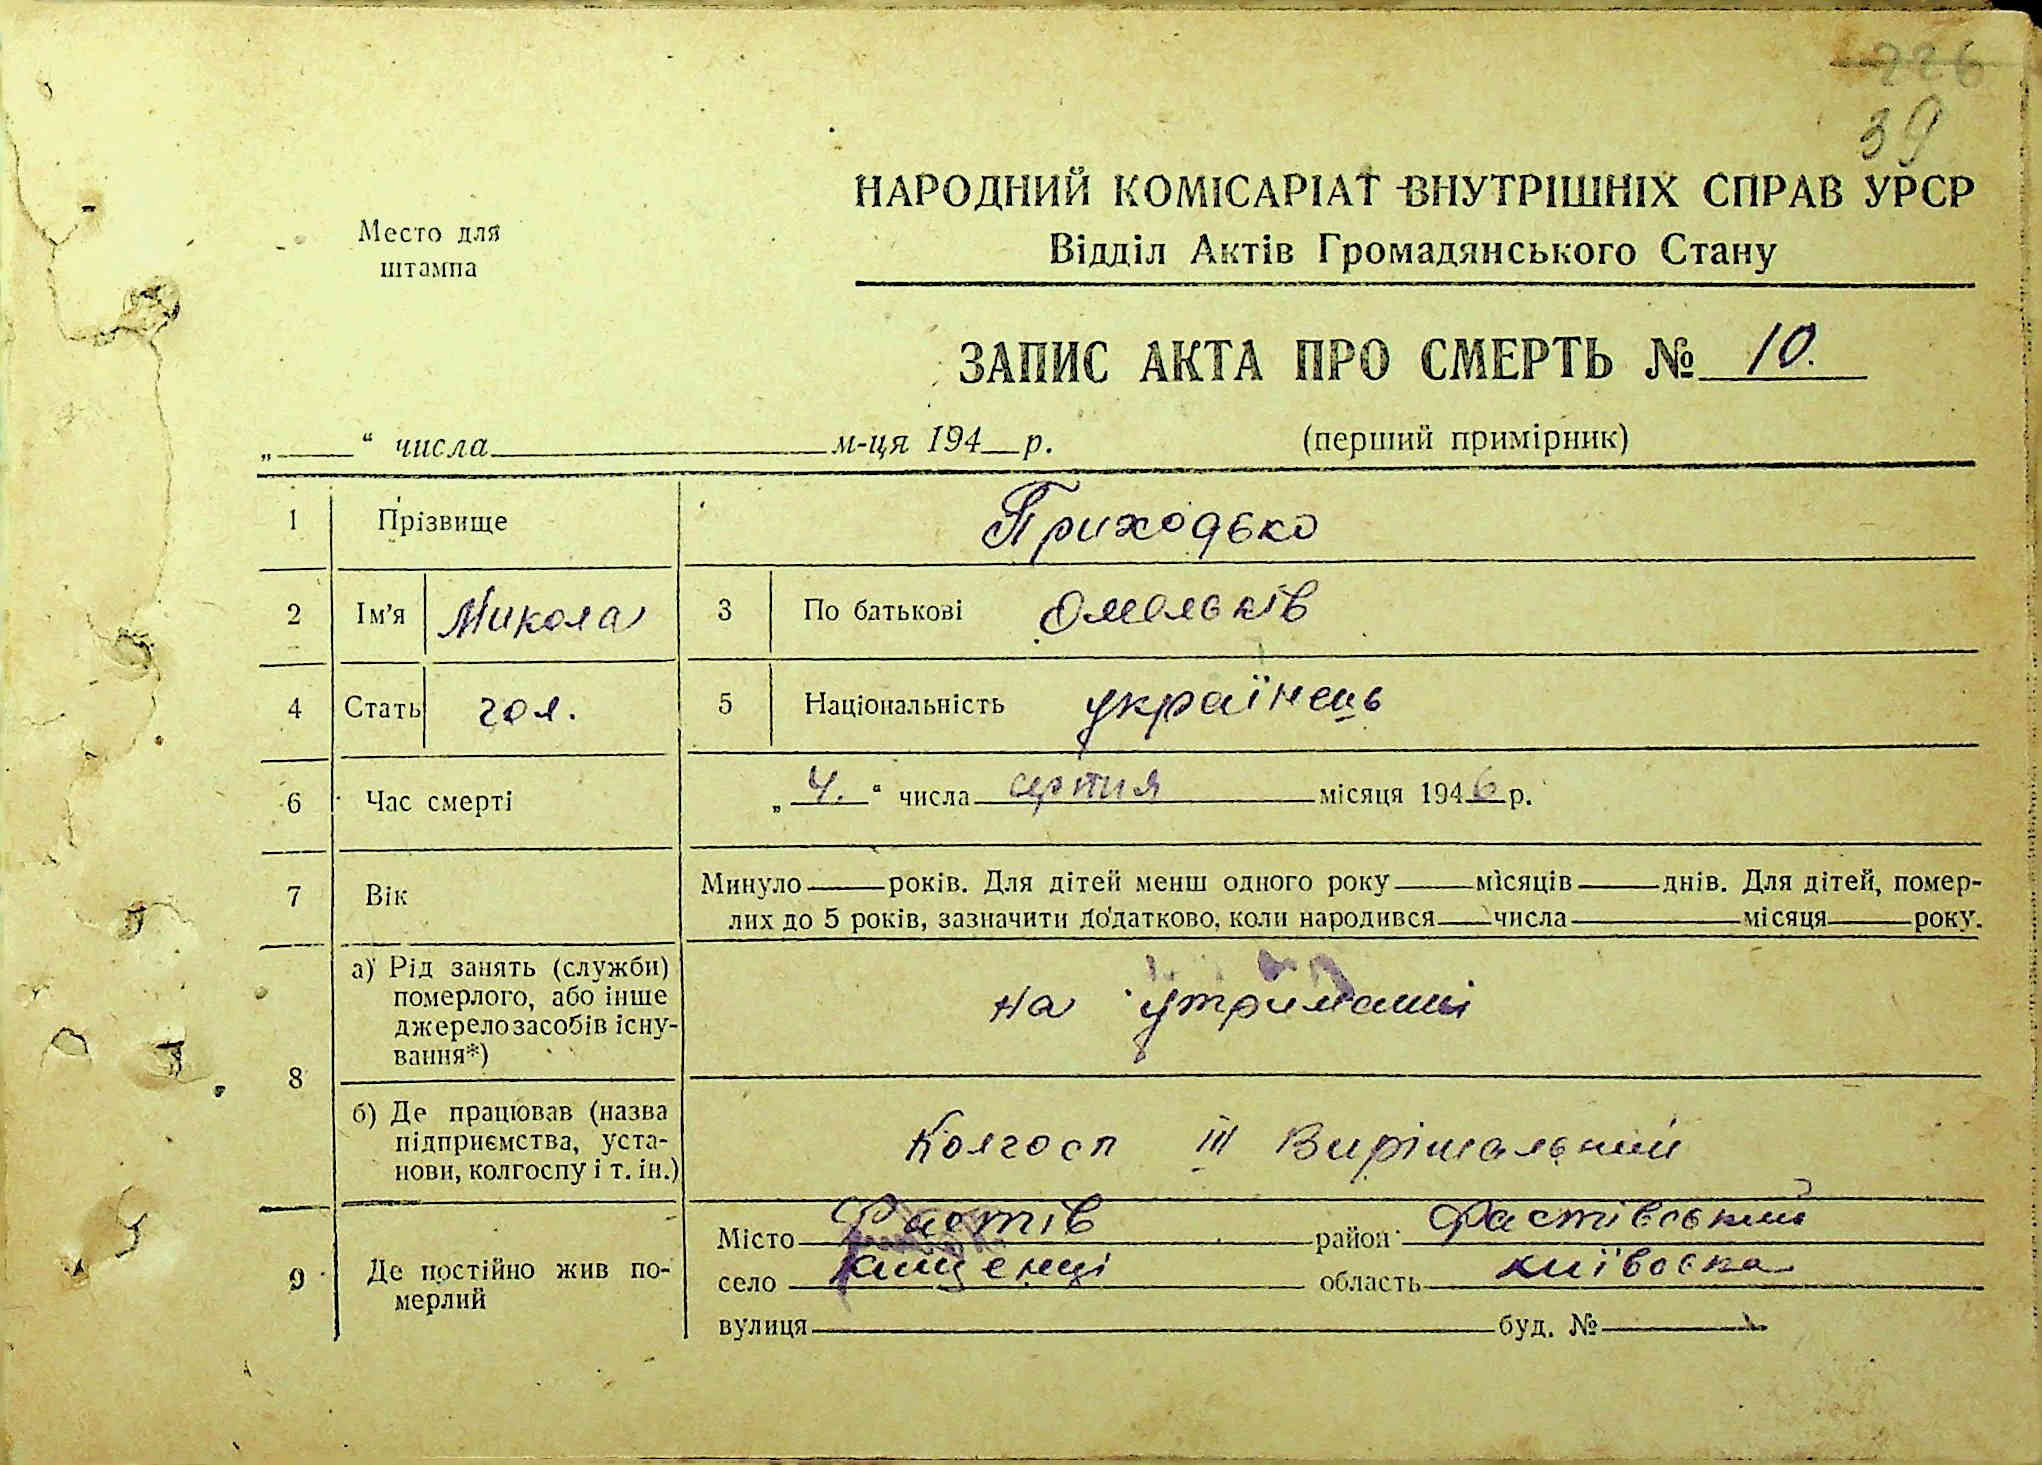 226
39
Место для
штампа
НАРОДНИЙ КОМІСАРІАТ ВНУТРІШНІХ СПРАВ УРСР
Відділ Актів Громадянського Стану
ЗАПИС АКТА ПРО СМЕРТЬ № 10.
„____“ числа____ м-ця 194__р. (перший примірник)
1 Прізвище Приходько
2 Ім'я Микола 3 По батькові Омельків
4 Стать чол. 5 Національність українець
6 Час смерті „4.“ числа серпня місяця 1946 р.
7 Вік Минуло____років. Для дітей менш одного року____місяців____днів. Для дітей, помер-
лих до 5 років, зазначити додатково, коли народився____числа____місяця____року.
8 а) Рід занять (служби)
померлого, або інше
джерело засобів існу-
вання*) на утриманні
б) Де працював (назва
підприємства, уста-
нови, колгоспу і т. ін.) Колгосп III Вирішальний
9 Де постійно жив по-
мерлий
Місто Фастів район Фастівський
село область київська
вулиця____ буд. №____